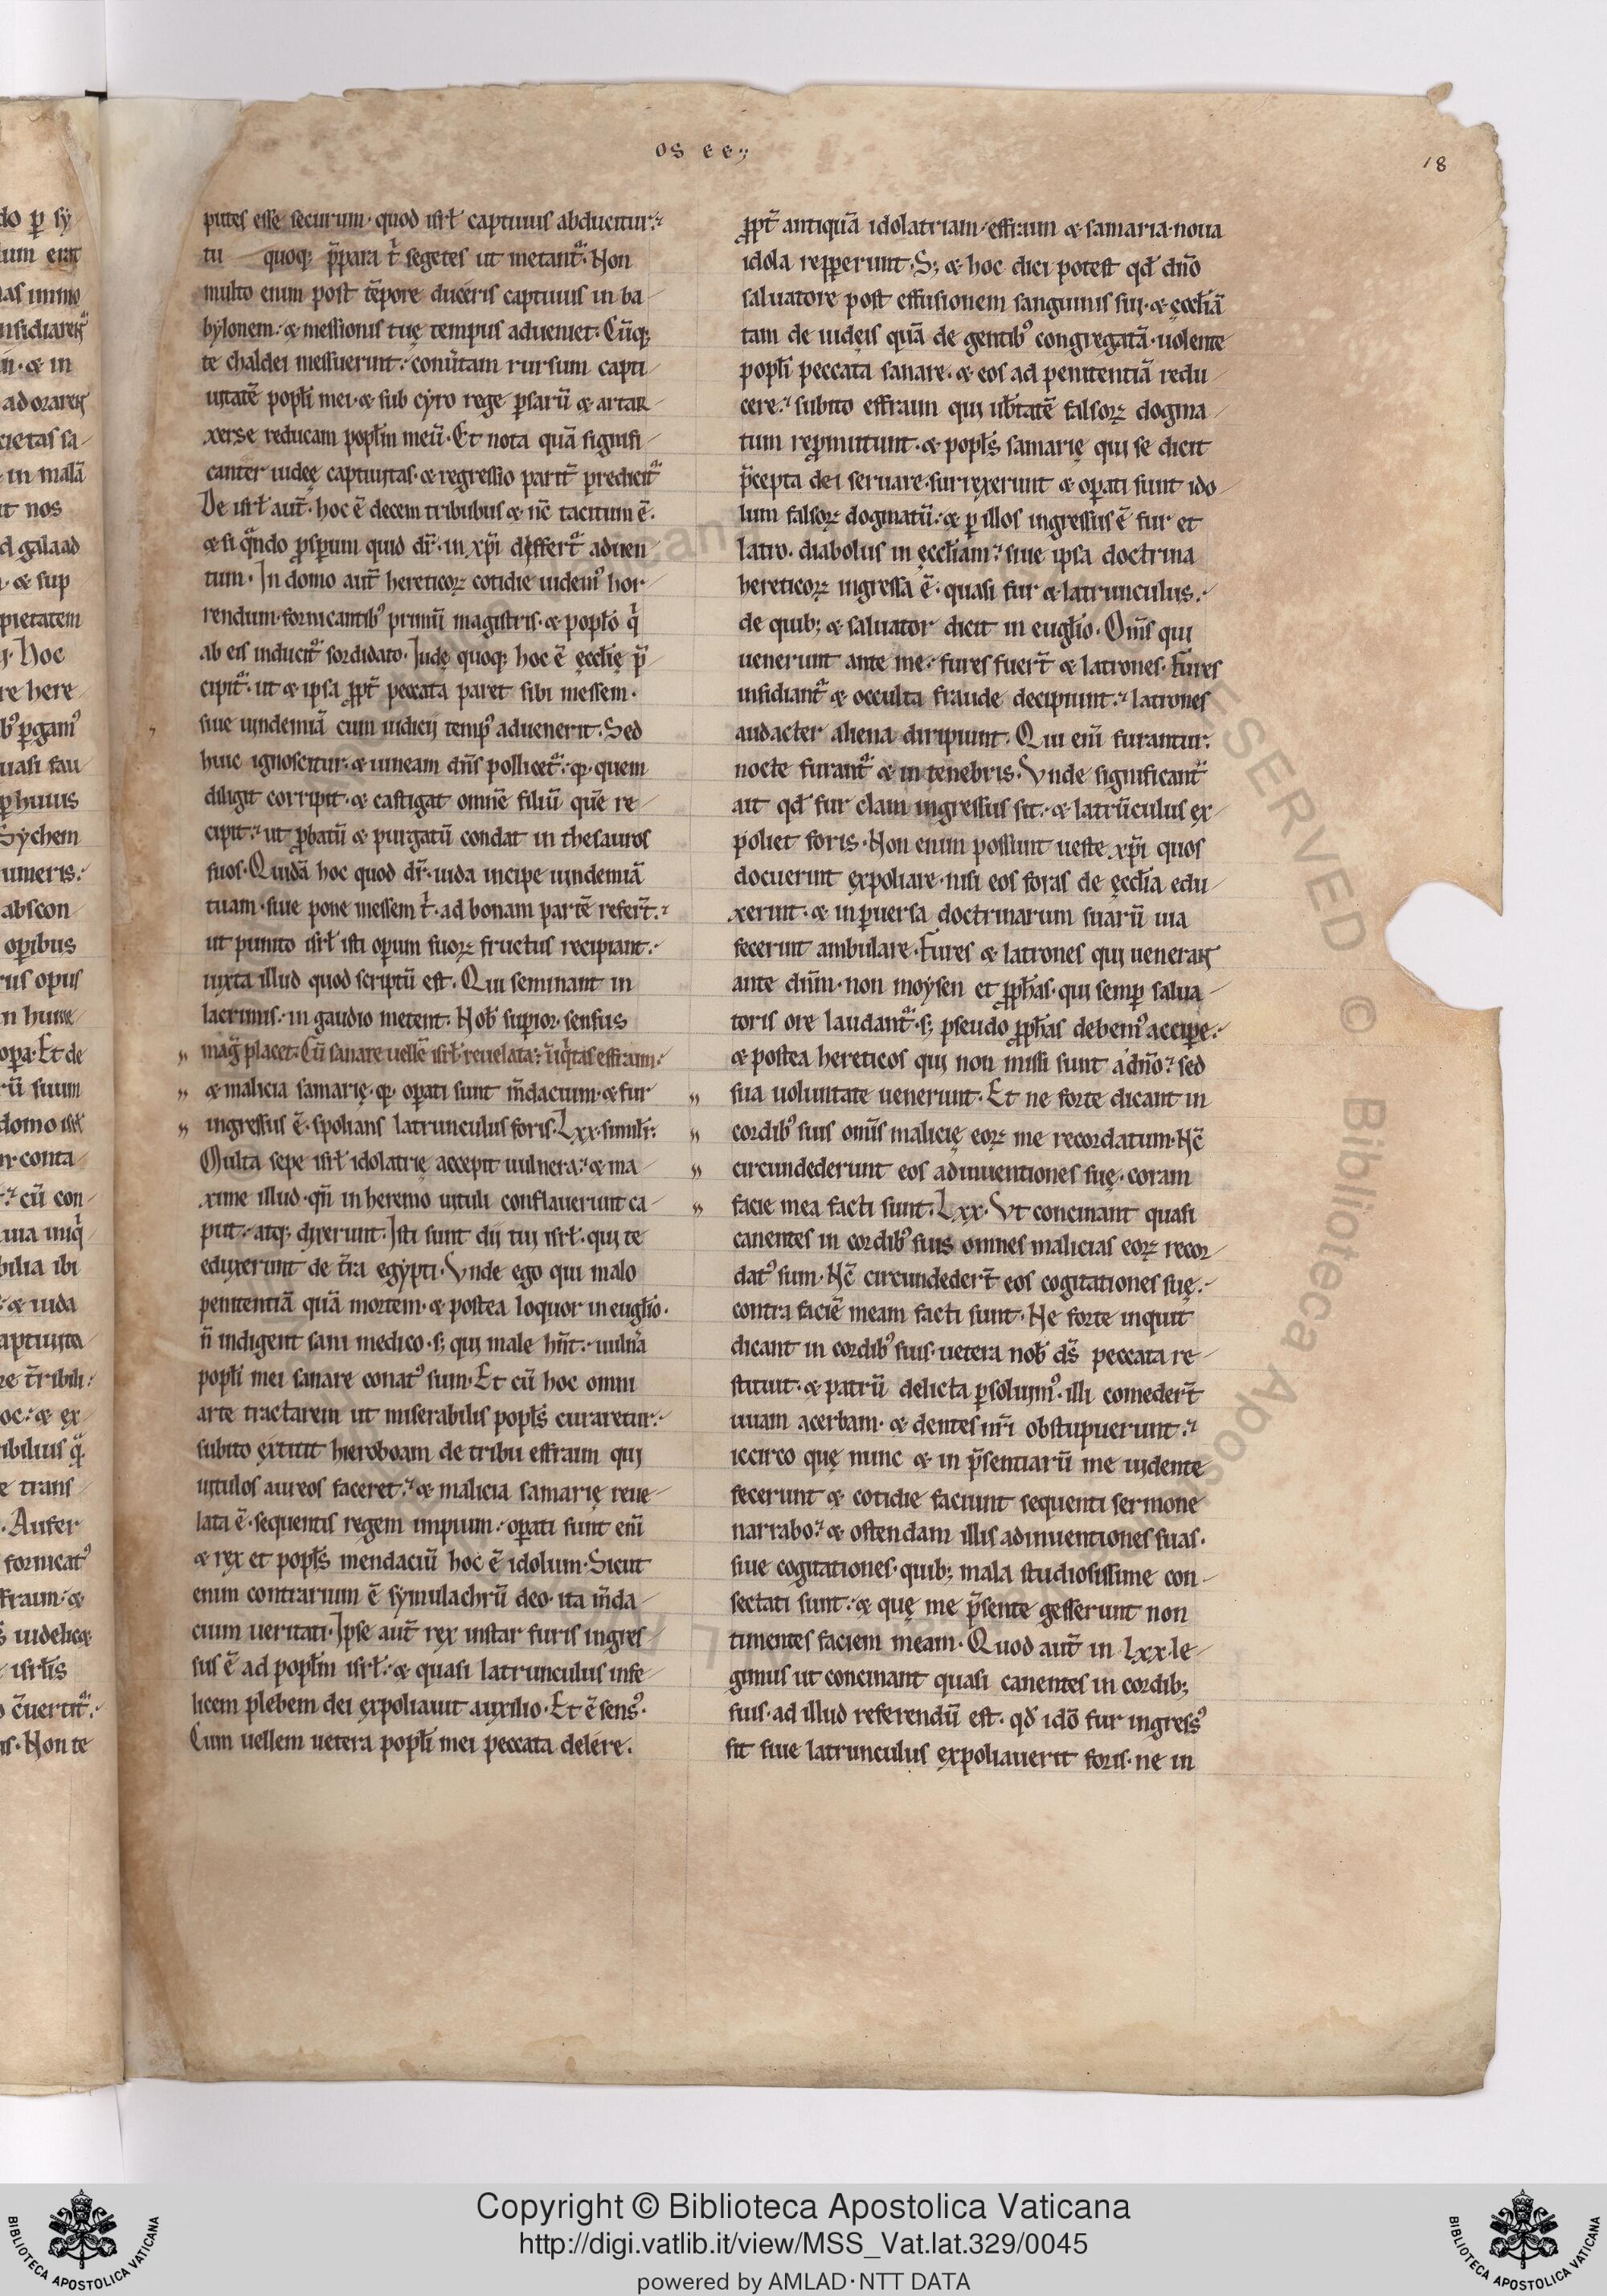 OS EE;
18
putes esse securum· quod isrł captiuus abducitur:
tu quoq; p̄para t̓ segetes ut metant᷑· Non
multo enim post tēpore duceris captiuus in ba
bylonem· & messionis tuę tempus adueniet· Cūq;
te chaldei messuerint: conūtam rursum capti
uitatē popłi mei· & sub cyro rege ꝑsarū & artar
xerse reducam popłm meū· Et nota quā signifi
canter iudeę captiuitas· & regressio parit̄ predicit᷑
De isrł aut̄· hoc ē decem tribubus & nc̄ tacitum ē·
& si q̄ndo ꝓsꝑum quid dr̄· in xp̄i differt᷑ aduen
tum· In domo aut̄ hereticoꝝ cotidie uidem᷒ hor
rendum· fornicantib᷒ primū magistris· & popło q̓
ab eis inducit᷑ sordidato· Iudę quoq; hoc ē ęcclię p̄
cipit᷑· ut & ipsa ꝓpt̄ peccata paret sibi messem·
siue uindemiā cum iudicij temp᷒ aduenerit· Sed
huic ignoscitur· & uineam dn̄s pollicet᷑· qꝫ quem
diligit corripit· & castigat omnē filiū quē re
cipit: ut ꝓbatū & purgatū condat in thesauros
suos· Quidā hoc quod dr̄· iuda incipe uindemiā
tuam· siue pone messem t̓· ad bonam partē refert̄:
ut punito isrł isti opum suoꝝ fructus recipiant:
iuxta illud quod scriptū est· Qui seminant in
lacrimis· in gaudio metent· Nob̄ suꝑior· sensus
mag̓ placet· Cū sanare uellē isrł reuelata: īiq̓tas effraim:
& malicia samarię· qꝫ oꝑati sunt m̄dacium· & fur
ingressus ē· spolians latrunculus foris· Lxx· similr̄:
Multa sepe isrł idolatrię accepit uulnera: & ma
xime illud· qn̄ in heremo uituli conflauerunt ca
put· atq; dixerunt· Isti sunt dij tui isrł· qui te
eduxerunt de t̄ra egypti· Vnde ego qui malo
penitentiā quā mortem· & postea loquor in eugłio·
n̄ indigent sani medico· s; qui male hn̄t: uulna
popłi mei sanare conat᷒ sum· Et cū hoc omni
arte tractarem ut miserabilis popłs curaretur:
subito extitit hieroboam de tribu effraim qui
uitulos aureos faceret: & malicia samarię reue
lata ē· sequentis regem impium· oꝑati sunt eni̅
& rex et popłs mendaciū hoc ē idolum· Sicut
enim contrarium ē symulachrū deo· ita m̄da
cium ueritati· Ipse aut̄ rex instar furis ingres
sus ē ad popłm isrł: & quasi latrunculus infe
licem plebem dei expoliauit auxilio· Et ē sens᷒·
Cum uellem uetera popłi mei peccata delere·
ꝓpt̄ antiquā idolatriam· effraim & samaria· noua
idola repꝑerunt· S; & hoc dici potest qd̄ dn̄o
saluatore post effusionem sanguinis sui· & ęcclīā
tam de iudęis quā de gentib᷒ congregatā· uolente
popłi peccata sanare· & eos ad penitentiā redu
cere: subito effraim qui ub̄tatē falsoꝝ dogma
tum repꝓmittunt· & popłs samarię qui se dicit
p̄cepta dei seruare· surrexerunt & oꝑati sunt ido
lum falsoꝝ dogmatū: & ꝑ illos ingressus ē fur et
latro· diabolus in ęccliam: siue ipsa doctrina
hereticoꝝ ingressa ē· quasi fur & latrunculus:
de quib; & saluator dicit in eugłio· Om̄s qui
uenerunt ante me: fures fuert̄ & latrones· Fures
insidiant᷑ & occulta fraude decipiunt: latrones
audacter aliena diripiunt· Qui eni̅ furantur:
nocte furant᷑ & in tenebris· Vnde significant̄
ait qd̄ fur clam ingressus sit: & latrūculus ex
poliet foris· Non enim possunt ueste xp̄i quos
docuerint expoliare· nisi eos foras de ęcclīa edu
xerint· & in ꝑuersa doctrinarum suarū uia
fecerint ambulare· Fures & latrones qui uenerant
ante dn̄m· non moysen et ꝓphas· qui semꝑ salua
toris ore laudant᷑· s; pseudo ꝓphas debem᷒ acciꝑe:
& postea hereticos qui non missi sunt a dn̄o: sed
sua uoluntate uenerunt· Et ne forte dicant in
cordib᷒ suis omīs malicię eoꝝ me recordatum· Nc̄
circundederunt eos adinuentiones suę· coram
facie mea facti sunt· Lxx· Vt concinant quasi
canentes in cordib᷒ suis omnes malicias eoꝝ recor
dat᷒ sum· Nc̄ circundedert̄ eos cogitationes suę:
contra faciē meam facti sunt· Ne forte inquit
dicant in cordib᷒ suis· uetera nob̄ ds̄ peccata re
stituit· & patrū delicta ꝑsoluim᷒· illi comedert̄
uuam acerbam· & dentes nr̄i obstupuerunt:
iccirco quę nunc & in p̄sentiarū me uidente
fecerunt & cotidie faciunt sequenti sermone
narrabo: & ostendam illis adinuentiones suas·
siue cogitationes· quib; mala studiosissime con
sectati sunt: & quę me p̄sente gesserunt non
timentes faciem meam· Quod aut̄ in Lxx· le
gimus ut concinant quasi canentes in cordib;
suis· ad illud referendū est· qd̄ idō fur ingress᷒
sit siue latrunculus expoliauerit foris· ne in
Copyright © Biblioteca Apostolica Vaticana
http://digi.vatlib.it/view/MSS_Vat.lat.329/0045
powered by AMLAD·NTT DATA
BIBLIOTECA APOSTOLICA VATICANA
BIBLIOTECA APOSTOLICA VATICANA